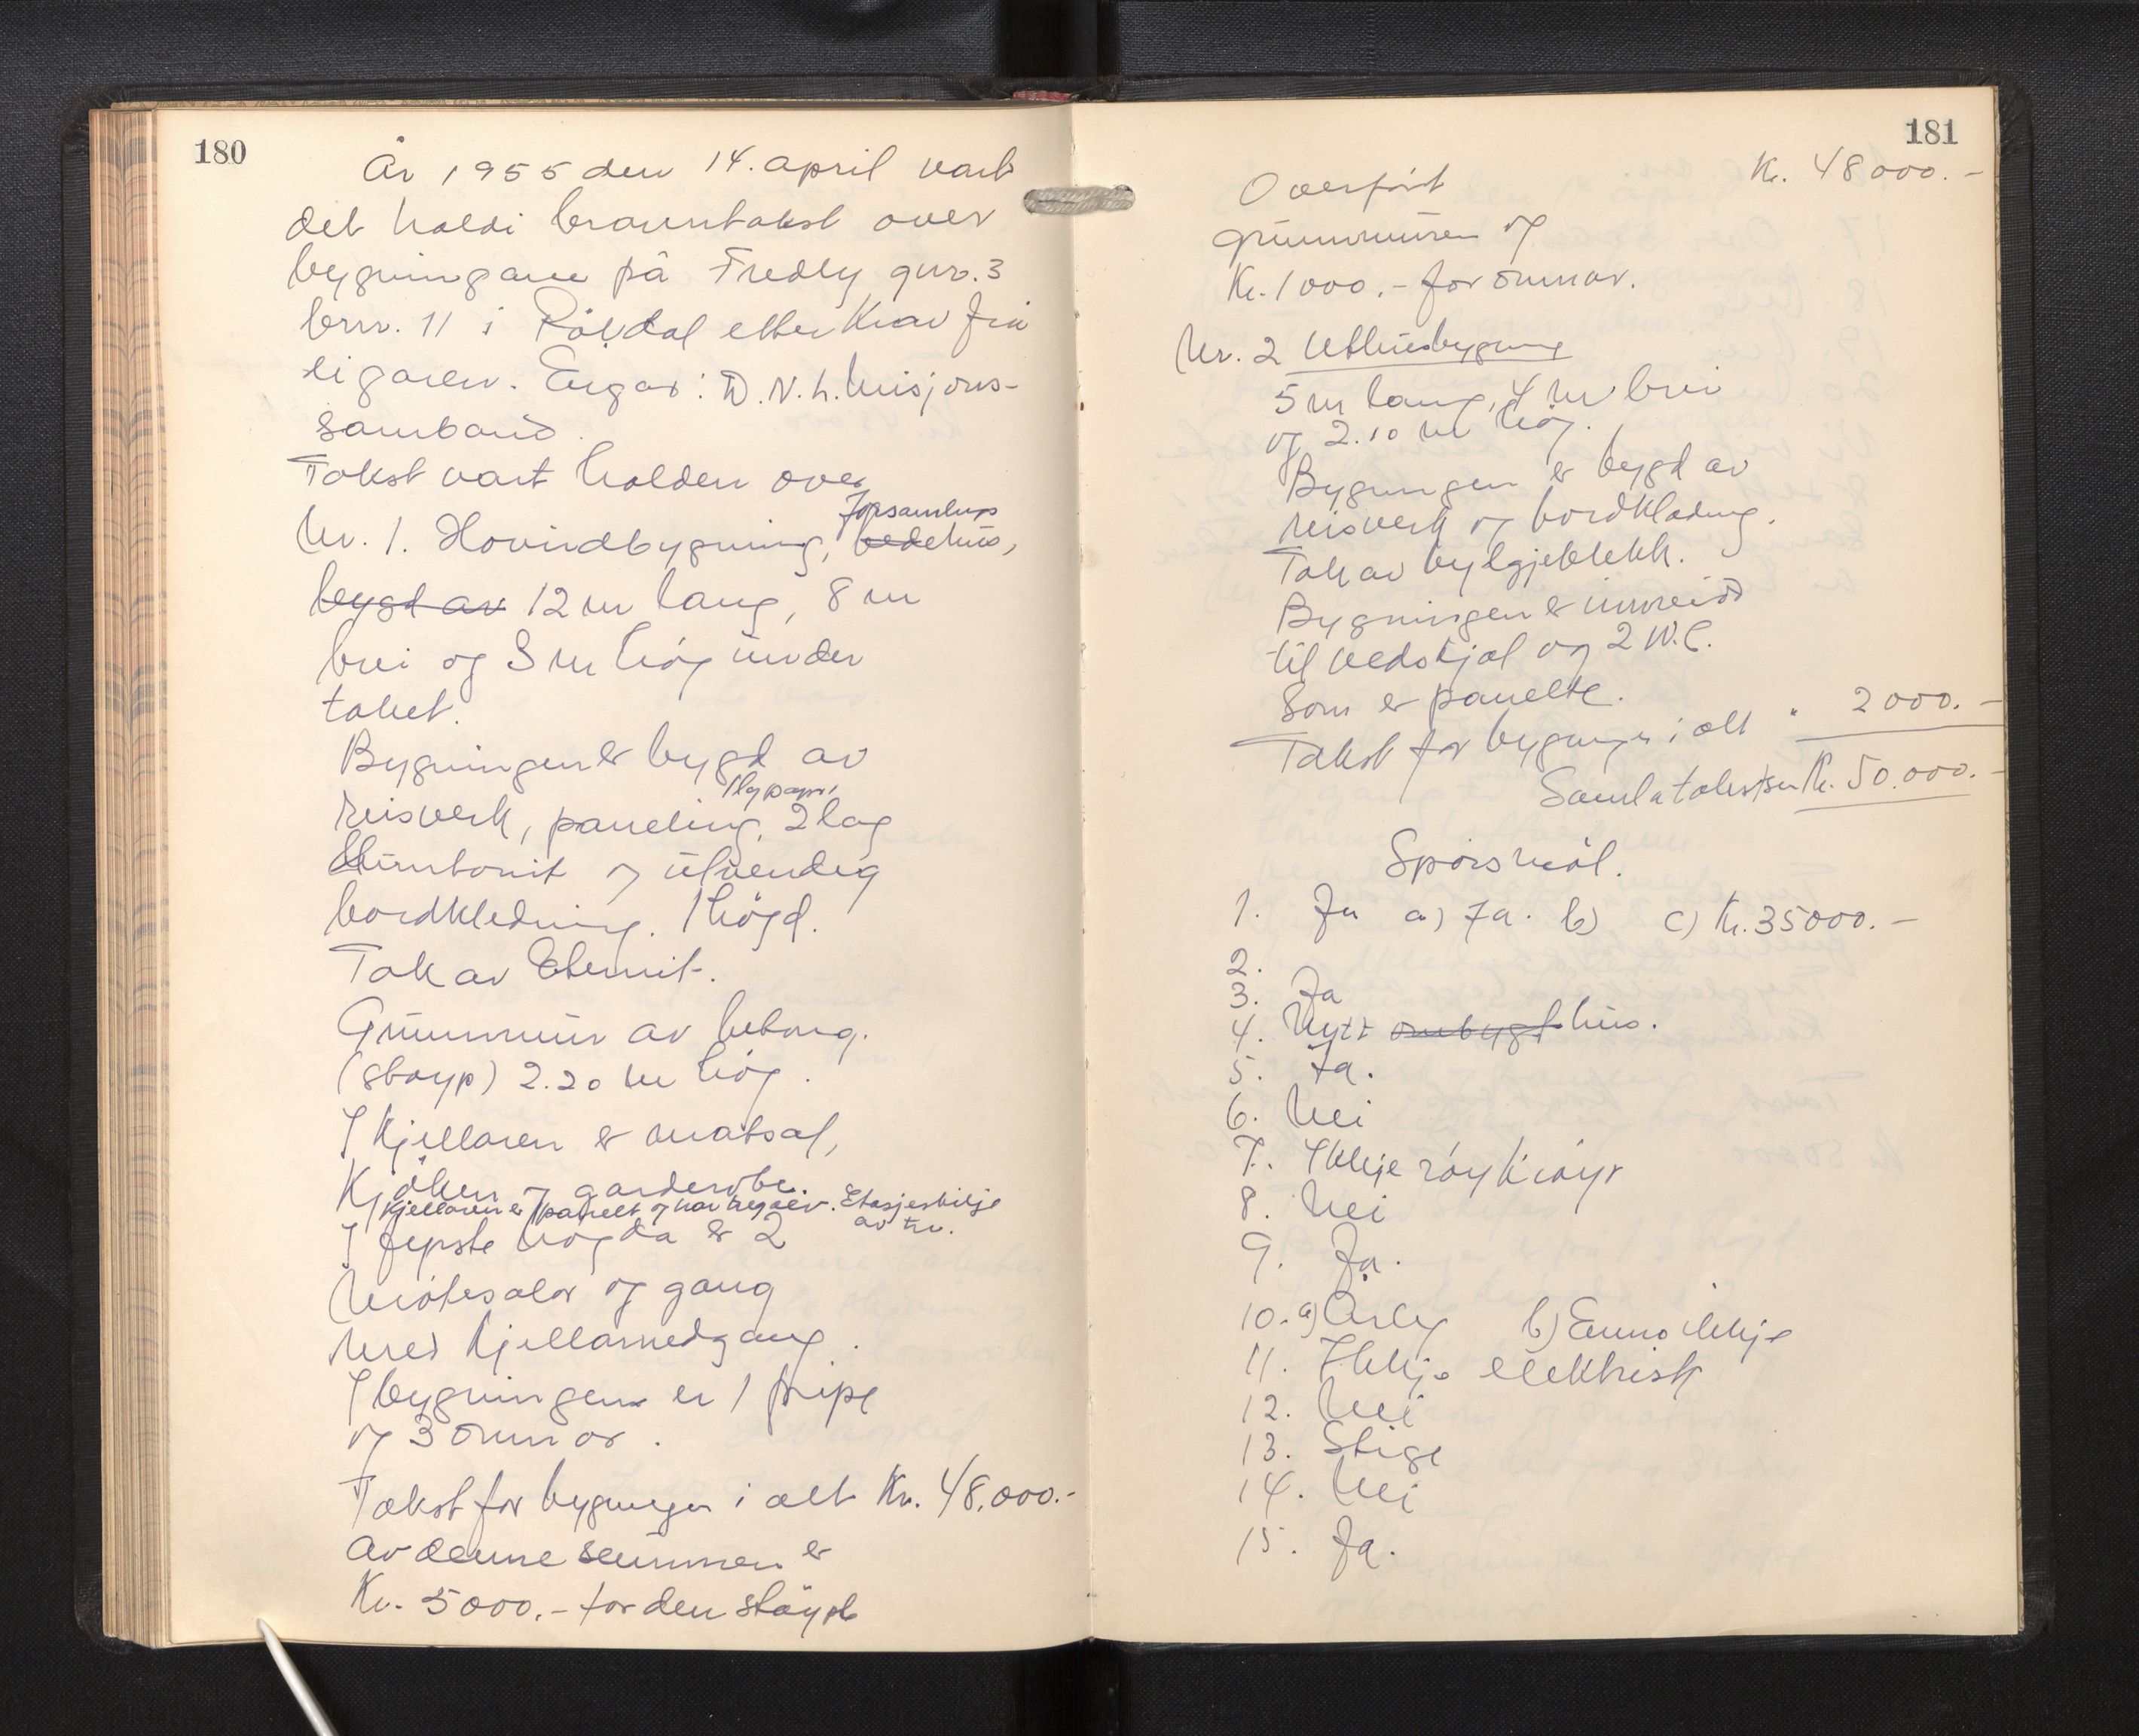 180
År 1955 den 14. april vart
det haldi branntakst over
bygningane på Fredly gnr. 3
bnr. 11 i Röldal etter krav frå
eigaren. Eigar: D.N.L. Misjons-
samband.
Takst vart halden over
Forsamlings
Nr. 1. Hovudbygning, bedehus,
bygd av 12 m lang, 8 m
brei og 3 m høg under
taket.
Bygningen er bygd av
1 lag papp,
reisverk, paneling, 2 lag
og utvendig
bordkledning. 1 høgd.
Tak av Eternit.
Grunnmur av betong.
(støyp) 2.20 m høg.
I kjellaren er matsal,
Kjøken og garderobe.
Kjellaren er panelt og har golv. Etasjeskilje
av tre.
I fyrste høgda er 2
møtesalar og gang
med kjellarnedgang.
I bygningen er 1 pipe
og 3 omnar.
Takst for bygningen i alt Kr. 48.000.-
Av denne summen er
Kr. 5000.- for den støypte
181
Overført Kr. 48000.-
grunnmuren og
Kr. 1000.- for omnar.
Nr. 2 Uthusbygning
5 m lang, 4 m brei
og 2.10 m høg.
Bygningen er bygd av
reisverk og bordkledning.
Tak av bylgjeblekk.
Bygningen er innreidd
til vedskjol og 2 W.C.
som er panelte.
Takst for bygningen i alt " 2000.-
Samla takstsum Kr. 50.000.-
Spørsmål.
1. Ja a) Ja. b) c) Kr. 35000.-
2.
3. Ja
4. Nytt ombygt hus.
5. Ja.
6. Nei
7. Ikkje røykrøyr
8. Nei
9. Ja.
10. a) Årleg b) Enno ikkje
11. Ikkje elektrisk
12. Nei
13. Stige
14. Nei
15. Ja.